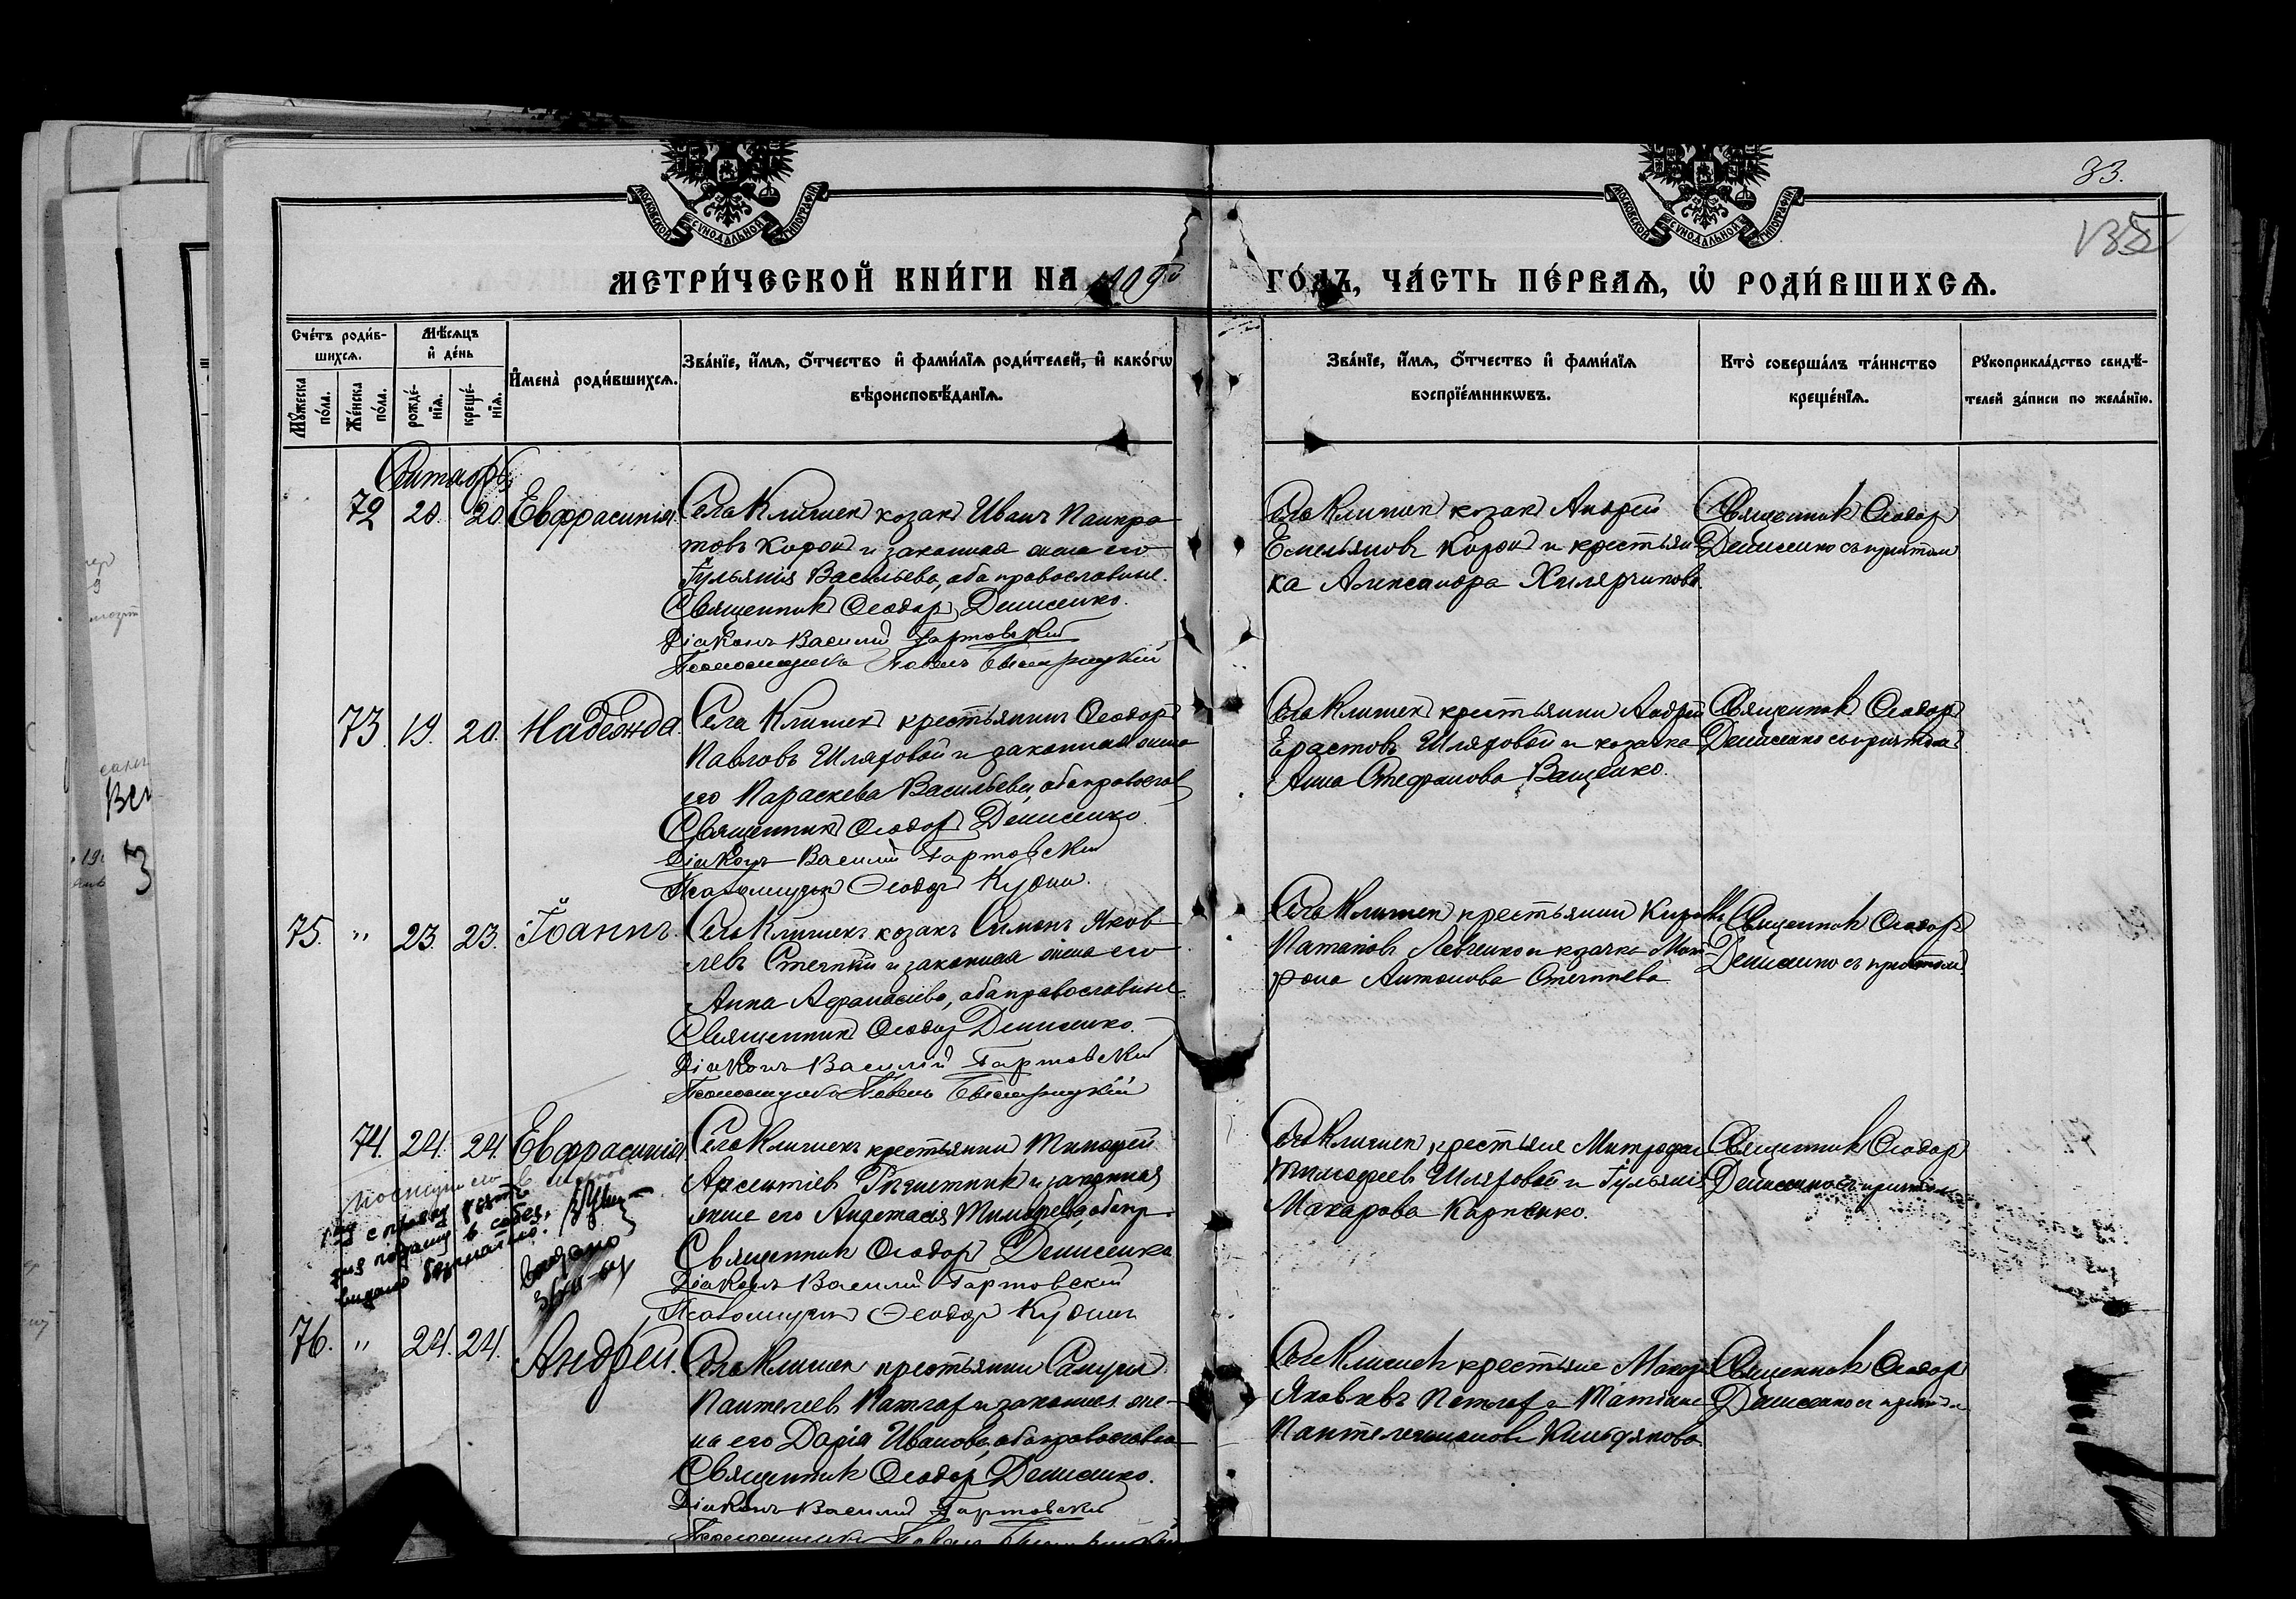 33.
135
МОСКОВСКОЙ СУНОДАЛЬНОЙ ТИПОГРАФІИ
МОСКОВСКОЙ СУНОДАЛЬНОЙ ТИПОГРАФІИ
МЕТРИ́ЧЕСКОЙ КНИ́ГИ НА 1909й ГО́ДЪ, ЧА́СТЬ ПЕ́РВАѦ, Ѡ҆ РОДИ́ВШИХСѦ.
Сче́тъ роди́в-
шихсѧ.
Мѣ́сѧцъ
и҆ де́нь
Мꙋ́жеска по́ла.
Же́нска по́ла.
рожде́-
нїѧ.
креще́-
нїѧ.
И҆мена̀ роди́вшихсѧ.
Зва́нїе, и҆́мѧ, ѻ҆́тчество и҆ фами́лїѧ роди́телей, и҆ како́гѡ
вѣроисповѣ́данїѧ.
Зва́нїе, и҆́мѧ, ѻ҆́тчество и҆ фами́лїѧ
воспрїе́мникѡвъ.
Кто̀ соверша́лъ та́инство
креще́нїѧ.
Рꙋкоприкла́дство свидѣ́-
телей за́писи по жела́нїю.
Сентябрь
72 20. 20 Евфрасинія.
Села Клишек козак Иван Панкра
товъ Корок и законная жена его
Гульянія Васильева, оба православные.
Священник Феодор Денисенко.
Діаконъ Василий Гартовский
Псаломщикъ Павелъ
Села Клишек козак Андрей
Емельянов Корок и крестьян
ка Александра Хилярчикова.
Священник Феодор
Денисенко съ причтом
73. 19. 20. Надежда.
Села Клишек крестьянин Феодор
Павловъ Шляховой и законная жена
его Параскева Васильева, оба православ
Священник Феодор Денисенко.
Діаконъ Василий Гартовский
Псаломщик Феодор Кудин.
Села Клишек крестьянин Андрей
Ерастовъ Шляховой и козачка
Анна Стефанова Ващенко.
Священник Феодор
Денисенко съ причтом
75. " 23. 23. Іоаннъ.
Села Клишек козакъ Симонъ Яков
левъ и законная жена его
Анна Афанасиева, оба православные.
Священник Феодор Денисенко.
Діаконъ Василій Гартовский
Псаломщикъ Павелъ
Села Клишек крестьянин
Потапов Левченко и козачка Мат
рона Антонова
Священник Феодор
Денисенко съ причтом
74. 24. 24. Евфрасинія
Села Клишек крестьянин Тимофей
Арсентіев и законная
жена его Анастасія оба пр.
Священник Феодор Денисенко
Діаконъ Василий Гартовский
Псаломщик Феодор Кудин
Села Клишек, крестьяне Митрофан
Тимофеев Шляховой и Гульянія
Макарова Карпенко.
Священник Феодор
Денисенко съ причтом
видано
видано
76. " 24. 24. Андрей.
Села Клишек крестьянин Самуил
Пантелеев Патлах и законная же-
на его Дарія Иванова, оба православн
Священник Феодор Денисенко.
Діаконъ Василий Гартовский
Псаломщикъ Павелъ
Села Клишек крестьяне Макар
Яковлевъ Патлах и Татіана
Пантелеимонова
Священник Феодор
Денисенко съ причтом